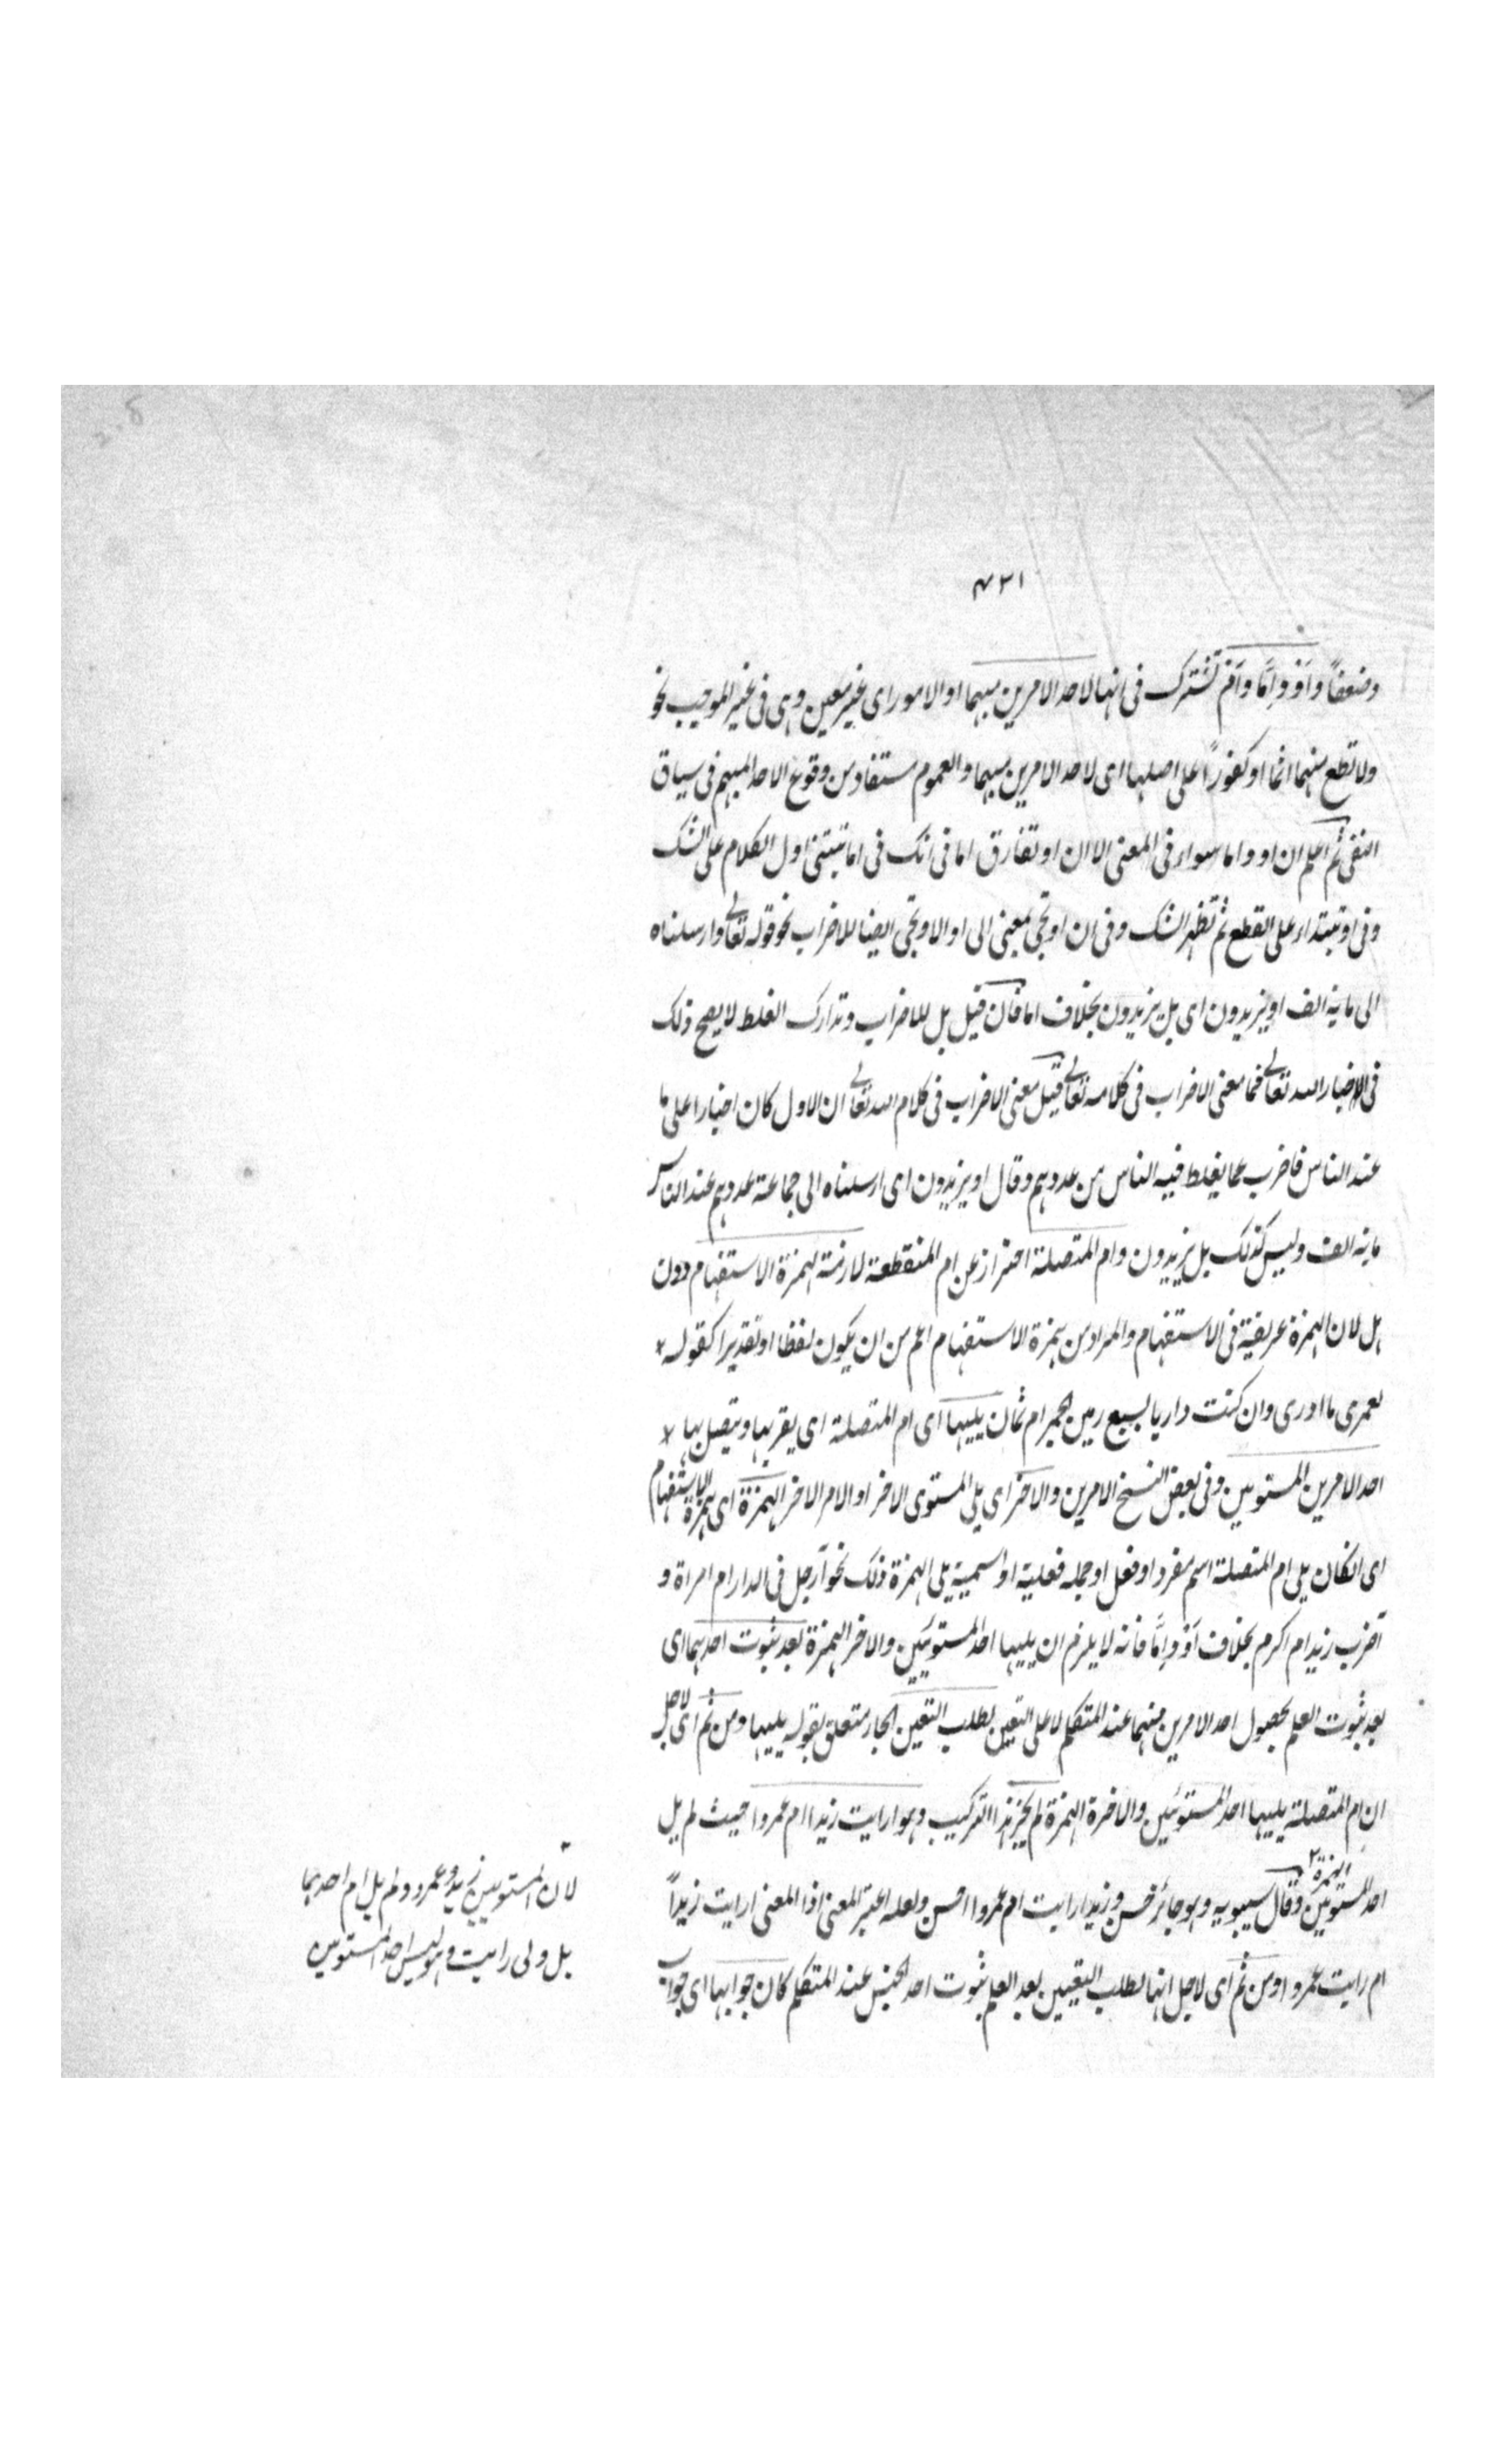 ٤٢١
وضعفاً واَوْ واِمَّا واَمْ تشترك فى انها لاحد الامرين مبهما او الامور اى غير معين وهى فى غير الموجب نحو
ولا تطع منهما اثما او كفوراً على اصلها اى لاحد الامرين مبهما والعموم مستفاد من وقوع الاحد المبهم فى سياق
النفى ثم اعلم ان او واما سواء فى المعنى الا ان او تفارق اما فى انك فى اما تبتنى اول الكلام على الشك
وفى او تبتداء على القطع ثم تظهر الشك وفى ان او تجئ بمعنى الى او الا وتجئ ايضا للاضراب نحو قوله تعالى وارسلناه
الى ماية الف او يزيدون اى بل يزيدون بخلاف اما فان قيل بل للاضراب وتدارك الغلط لا يصح ذلك
فى الاخبار الله تعالى فما معنى الاضراب فى كلامه تعالى قيل معنى الاضراب فى كلام الله تعالى ان الاول كان اخبارا على ما
عند الناس فاضرب عما يغلط فيه الناس من عددهم وقال او يزيدون اى ارسلناه الى جماعة عددهم عند الناس
ماية الف وليس كذلك بل يزيدون وام المتصلة احتراز عن ام المنقطعة لازمة لهمزة الاستفهام دون
هل لان الهمزة عريقة فى الاستفهام والمراد من همزة الاستفهام اعم من ان يكون لفظا او تقديرا كقوله *
لعمرى ما ادرى وان كنت داريا بسبع رمين الجمر ام ثمان يليها اى ام المتصلة اى يقربها ويتصل بها *
احد الامرين المستويين وفى بعض النسخ الامرين والاخر اى يلى المستوى الاخر او الامر الاخر الهمزة اى همزة الاستفهام
اى ان كان يلى ام المتصلة اسم مفرد او فعل او جملة فعلية او اسمية يلى الهمزة ذلك نحو أرجل فى الدار ام امراة و
أضرب زيد ام اكرم بخلاف اَوْ واِمَّا فانه لا يلزم ان يليها احد المستويين والاخر الهمزة بعد ثبوت احدهما اى
بعد ثبوت العلم بحصول احد الامرين منهما عند المتكلم لا على التعين لطلب التعين الجار متعلق بقوله يليها ومن ثم اى لاجل
ان ام المتصلة يليها احد المستويين والاخرة الهمزة لم يجز هذا التركيب وهو ارايت زيدا ام عمروا حيث لم يل
الهمزة ٢
احد المستويين وقال سيبويه وهو جائز حسن وزيدا رايت ام عمروا احسن ولعله اعتبر المعنى اذا المعنى ارايت زيداً
ام رايت عمروا ومن ثم اى لاجل انها لطلب التعيين بعد العلم بثبوت احد الجنس عند المتكلم كان جوابها اى جواب
لان المستويين زيد وعمرو ولم يل ام احدهما
بل ولى رايت وهو ليس احد المستويين